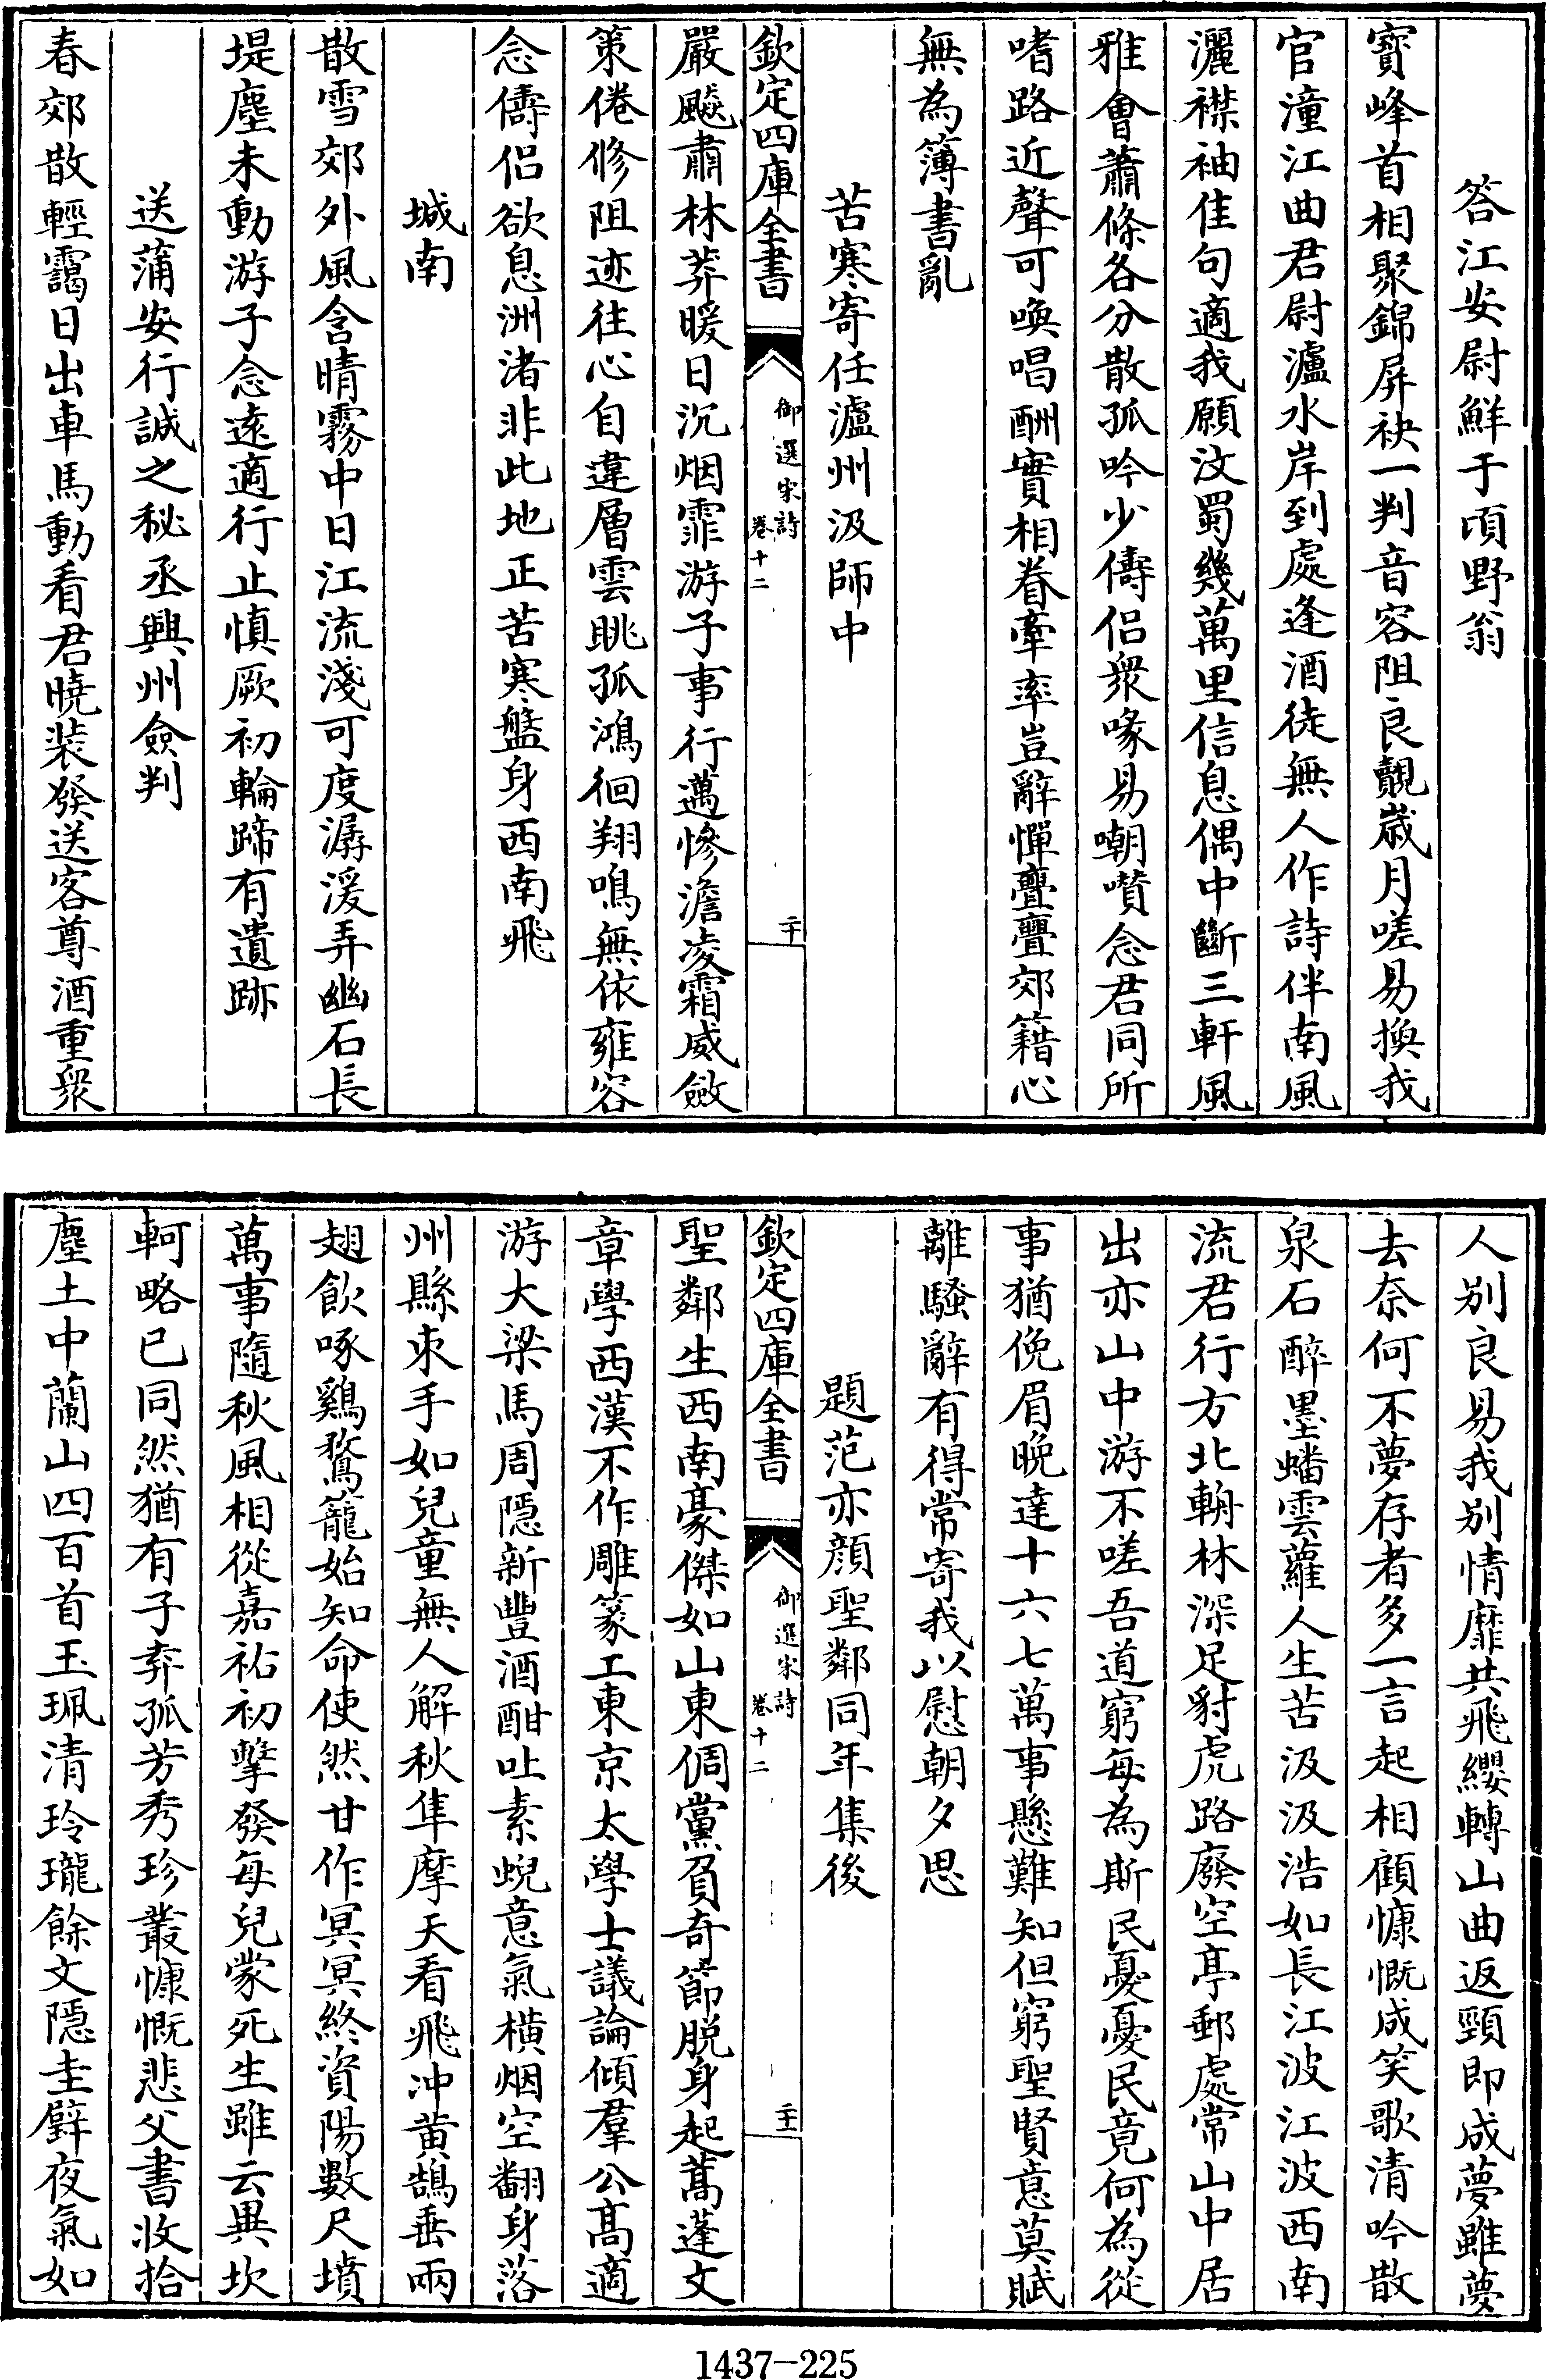 答江安尉鮮于頃野翁
寳峰首相聚錦屏袂一判音容阻良覿嵗月嗟易換我
官潼江曲君尉瀘水岸到處逢酒徒無人作詩伴南風
灑襟袖佳句適我願汶蜀幾萬里信息偶中斷三軒風
雅會蕭條各分散孤吟少儔侣衆喙易嘲嘖念君同所
嗜路近聲可喚唱酬實相眷牽率豈辭憚亹亹郊籍心
無為簿書亂
苦寒寄任瀘州汲師中
欽定四庫全書
御選宋詩
卷十二
二十
嚴飈肅林莽暖日沉烟霏游子事行邁慘澹凌霜威斂
策倦修阻迹往心自違層雲眺孤鴻徊翔鳴無依雍容
念儔侣欲息洲渚非此地正苦寒盤身西南飛
城南
散雪郊外風含晴霧中日江流淺可度潺湲弄幽石長
堤塵未動游子念逺適行止慎厥初輪蹄有遺跡
送蒲安行誠之秘丞興州僉判
春郊散輕靄日出車馬動看君曉装發送客尊酒重衆
人别良易我别情靡共飛纓轉山曲返頸即成夢雖夢
去奈何不夢存者多一言起相顧慷慨成笑歌清吟散
泉石醉墨蟠雲蘿人生苦汲汲浩如長江波江波西南
流君行方北輈林深足豺虎路廢空亭郵處常山中居
出亦山中游不嗟吾道窮每為斯民憂憂民竟何為從
事猶俛眉晚達十六七萬事懸難知但窮聖賢意莫賦
離騷辭有得常寄我以慰朝夕思
題范亦顔聖鄰同年集後
欽定四庫全書
御選宋詩
卷十二
二十一
聖鄰生西南豪傑如山東倜黨負奇節脱身起蒿蓬文
章學西漢不作雕篆工東京太學士議論傾羣公髙適
游大梁馬周隱新豐酒酣吐素蜺意氣横烟空翻身落
州縣朿手如兒童無人解秋隼摩天看飛冲黄鵠垂兩
翅飲啄鷄鶩籠始知命使然甘作冥冥終資陽數尺墳
萬事隨秋風相從嘉祐初擊發每兒蒙死生雖云異坎
軻略已同然猶有子弆孤芳秀珍叢慷慨悲父書收拾
塵土中蘭山四百首玉珮清玲瓏餘文隱圭璧夜氣如
1437-225